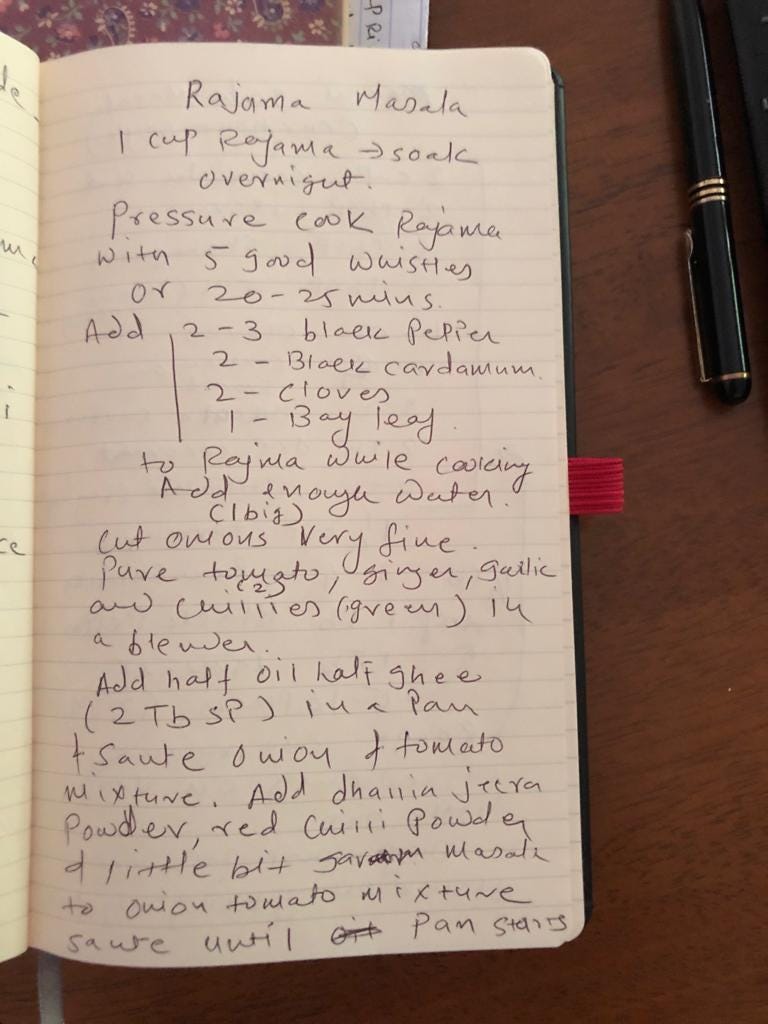 P Ri
Rajama Masala
1 cup Rajama → soak
overnight.
Pressure cook Rajama
with 5 good whistles
or 20-25 mins.
Add 2-3 black Pepper
2 - Black cardamum.
2 - Cloves
1 - Bay leaf.
to Rajma while cooking
Add enough water.
(1 big)
Cut onions very fine.
Pure tomato, ginger, garlic
(2)
and chillies (green) in
a blender.
Add half oil half ghee
(2 TbSP) in a Pan
& Saute onion & tomato
mixture. Add dhania jeera
Powder, red Chilli Powder
& little bit garam Masala
to onion tomato mixture
saute until Pan starts